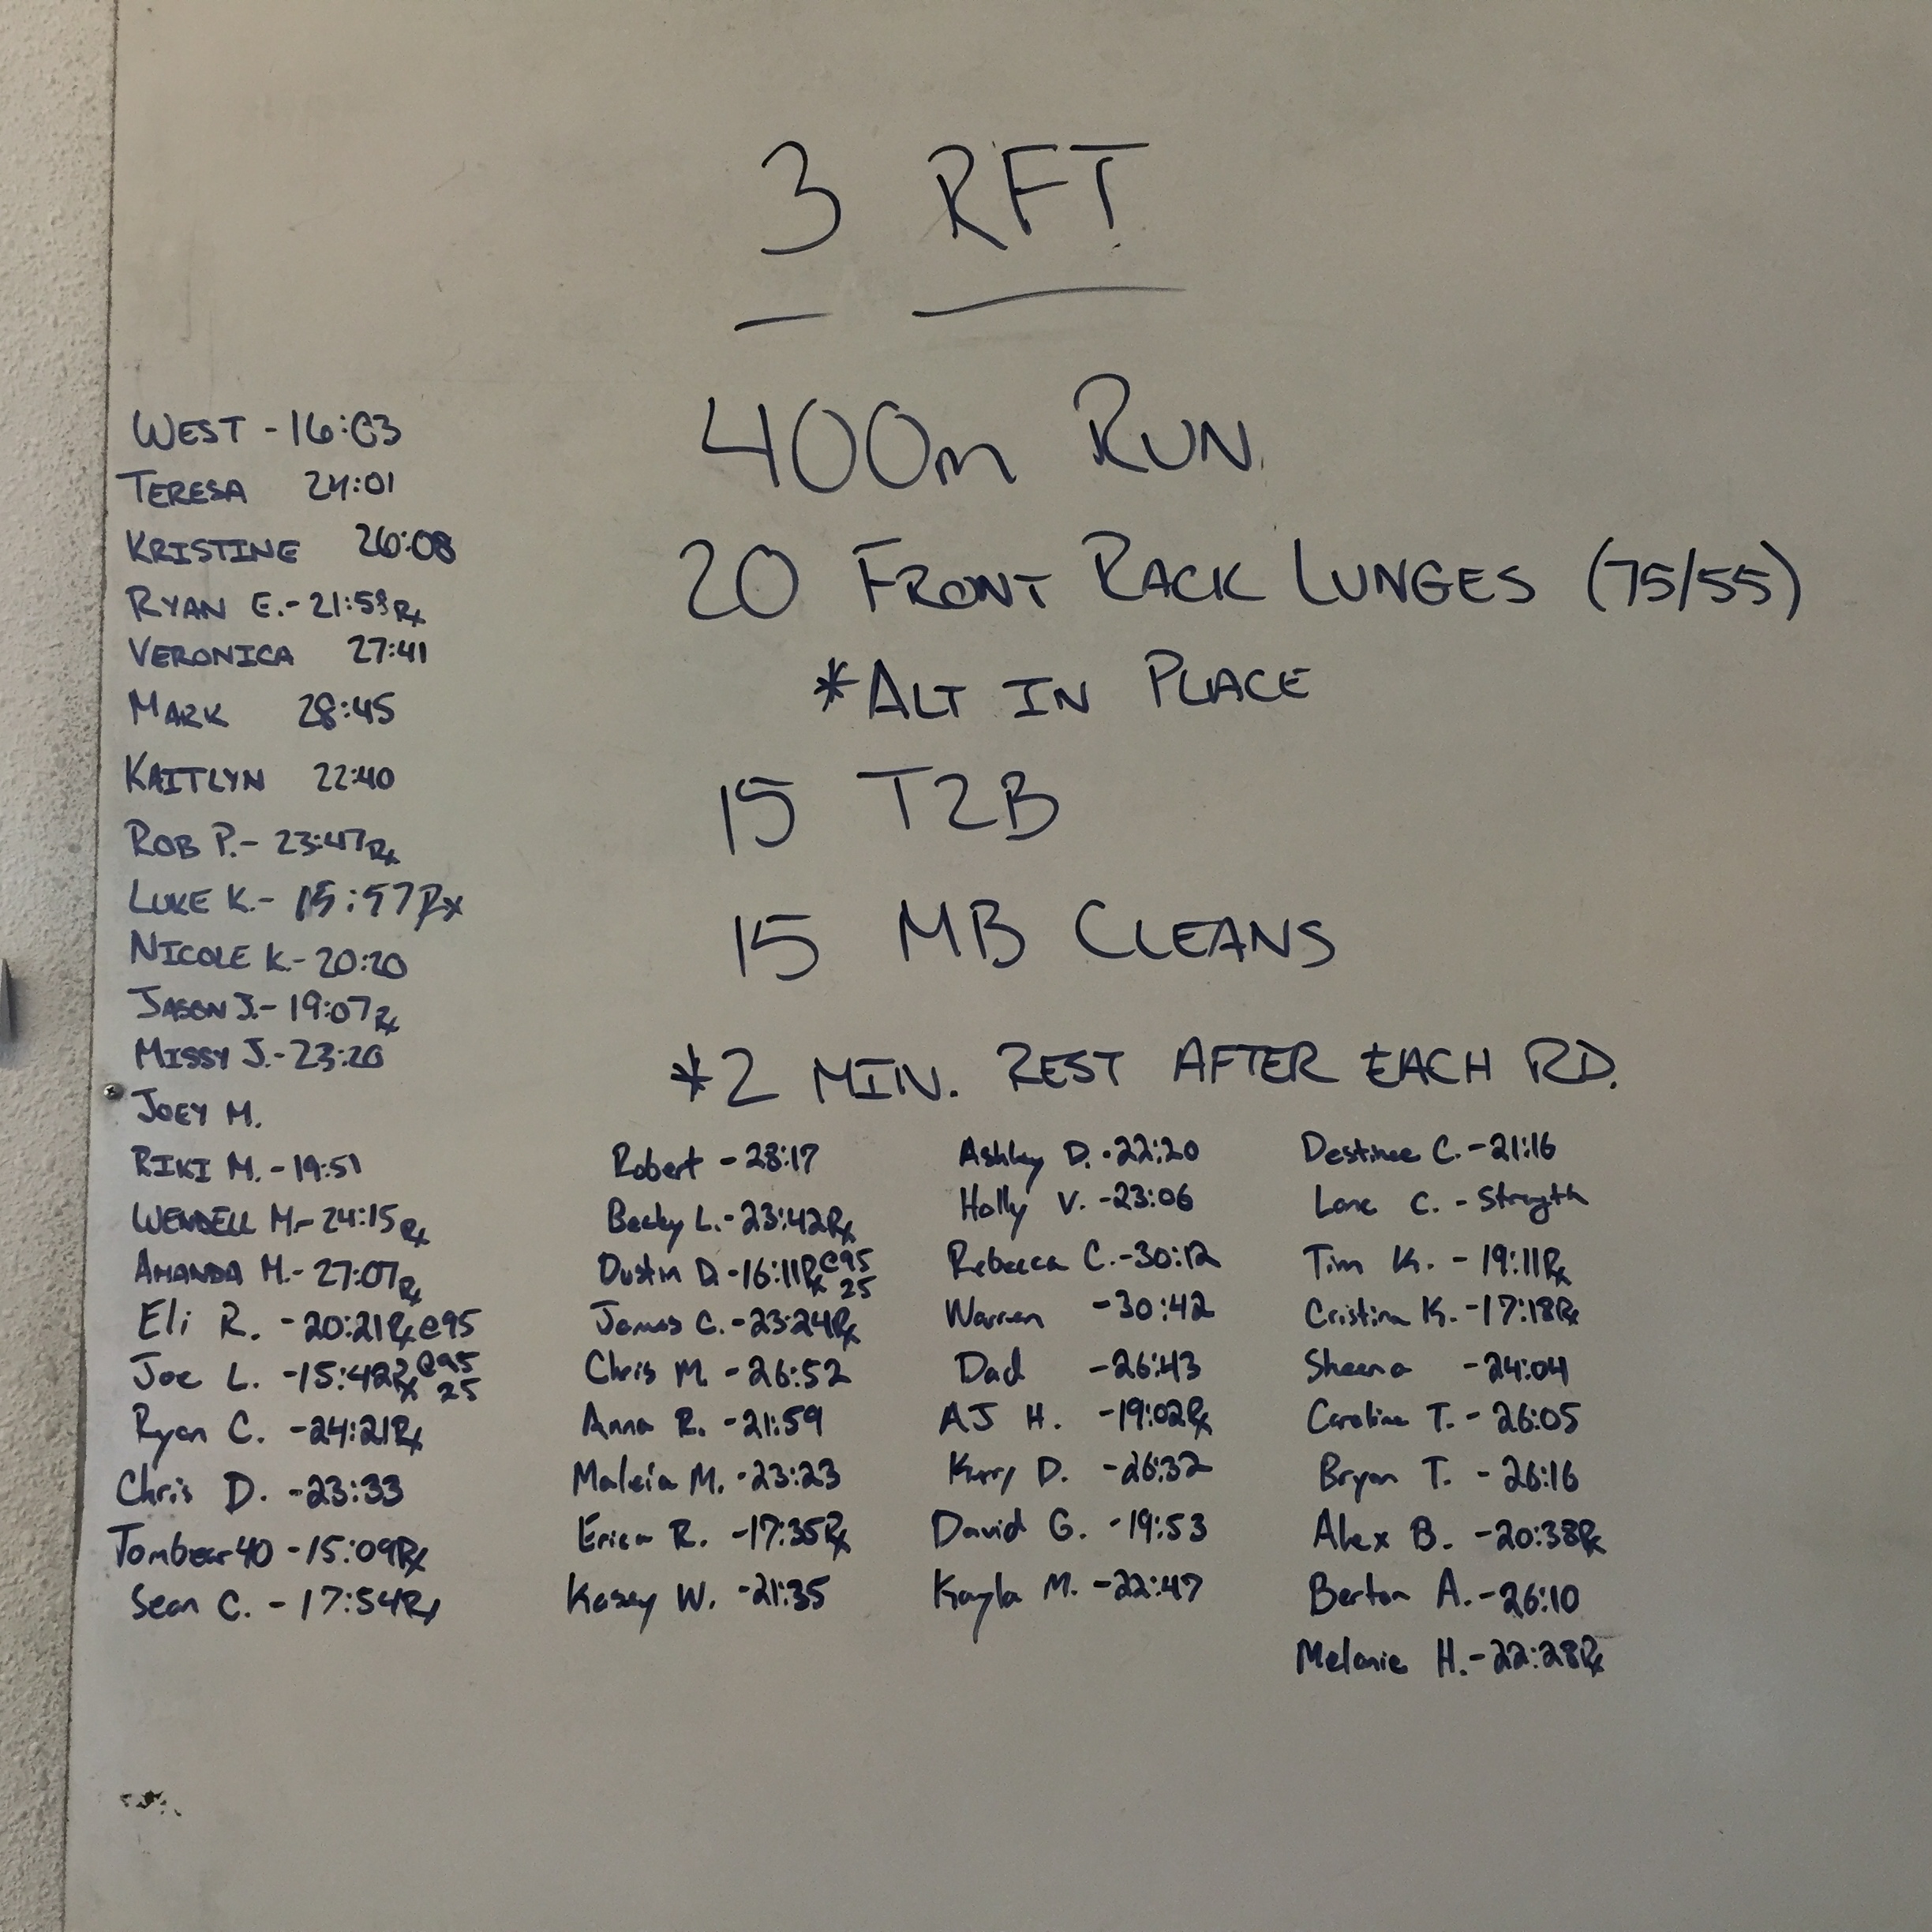 3 RFT
400m RUN
20 FRONT RACK LUNGES (75/55)
*ALT IN PLACE
15 T2B
15 MB CLEANS
*2 MIN. REST AFTER EACH RD.
WEST - 16:03
TERESA 24:01
KRISTINE 26:08
RYAN E. - 21:59 Rx
VERONICA 27:41
MARK 28:45
KAITLYN 22:40
ROB P. - 23:47 Rx
LUKE K. - 15:57 Rx
NICOLE K. - 20:20
JASON J. - 19:07 Rx
MISSY J. - 23:20
JOEY M.
RIKI M. - 19:51
WENDELL M. - 24:15 Rx
AMANDA M. - 27:07 Rx
Eli R. - 20:21 Rx @95
Joe L. - 15:42 Rx @95 25
Ryan C. - 24:21 Rx
Chris D. - 23:33
Tombear40 - 15:09 Rx
Sean C. - 17:54 Rx
Robert - 28:17
Becky L. - 23:42 Rx
Dustin D. - 16:11 Rx @95 25
James C. - 23:24 Rx
Chris M. - 26:52
Anna R. - 21:59
Maleia M. - 23:23
Erica R. - 17:35 Rx
Kasey W. - 21:35
Ashley D. - 22:20
Holly V. - 23:06
Rebecca C. - 30:12
Warren - 30:42
Dad - 26:43
AJ H. - 19:02 Rx
D. - 26:32
David G. - 19:53
Kayla M. - 22:47
Destinee C. - 21:16
Lane C. - Strength
Tim K. - 19:11 Rx
Cristina K. - 17:18 Rx
Sheena - 24:04
Caroline T. - 26:05
Bryan T. - 26:16
Alex B. - 20:38 Rx
Berton A. - 26:10
Melanie H. - 22:28 Rx